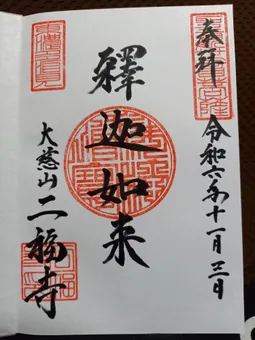 奉拝
令和六年十一月三日
釋迦如来
大慈山
二福寺